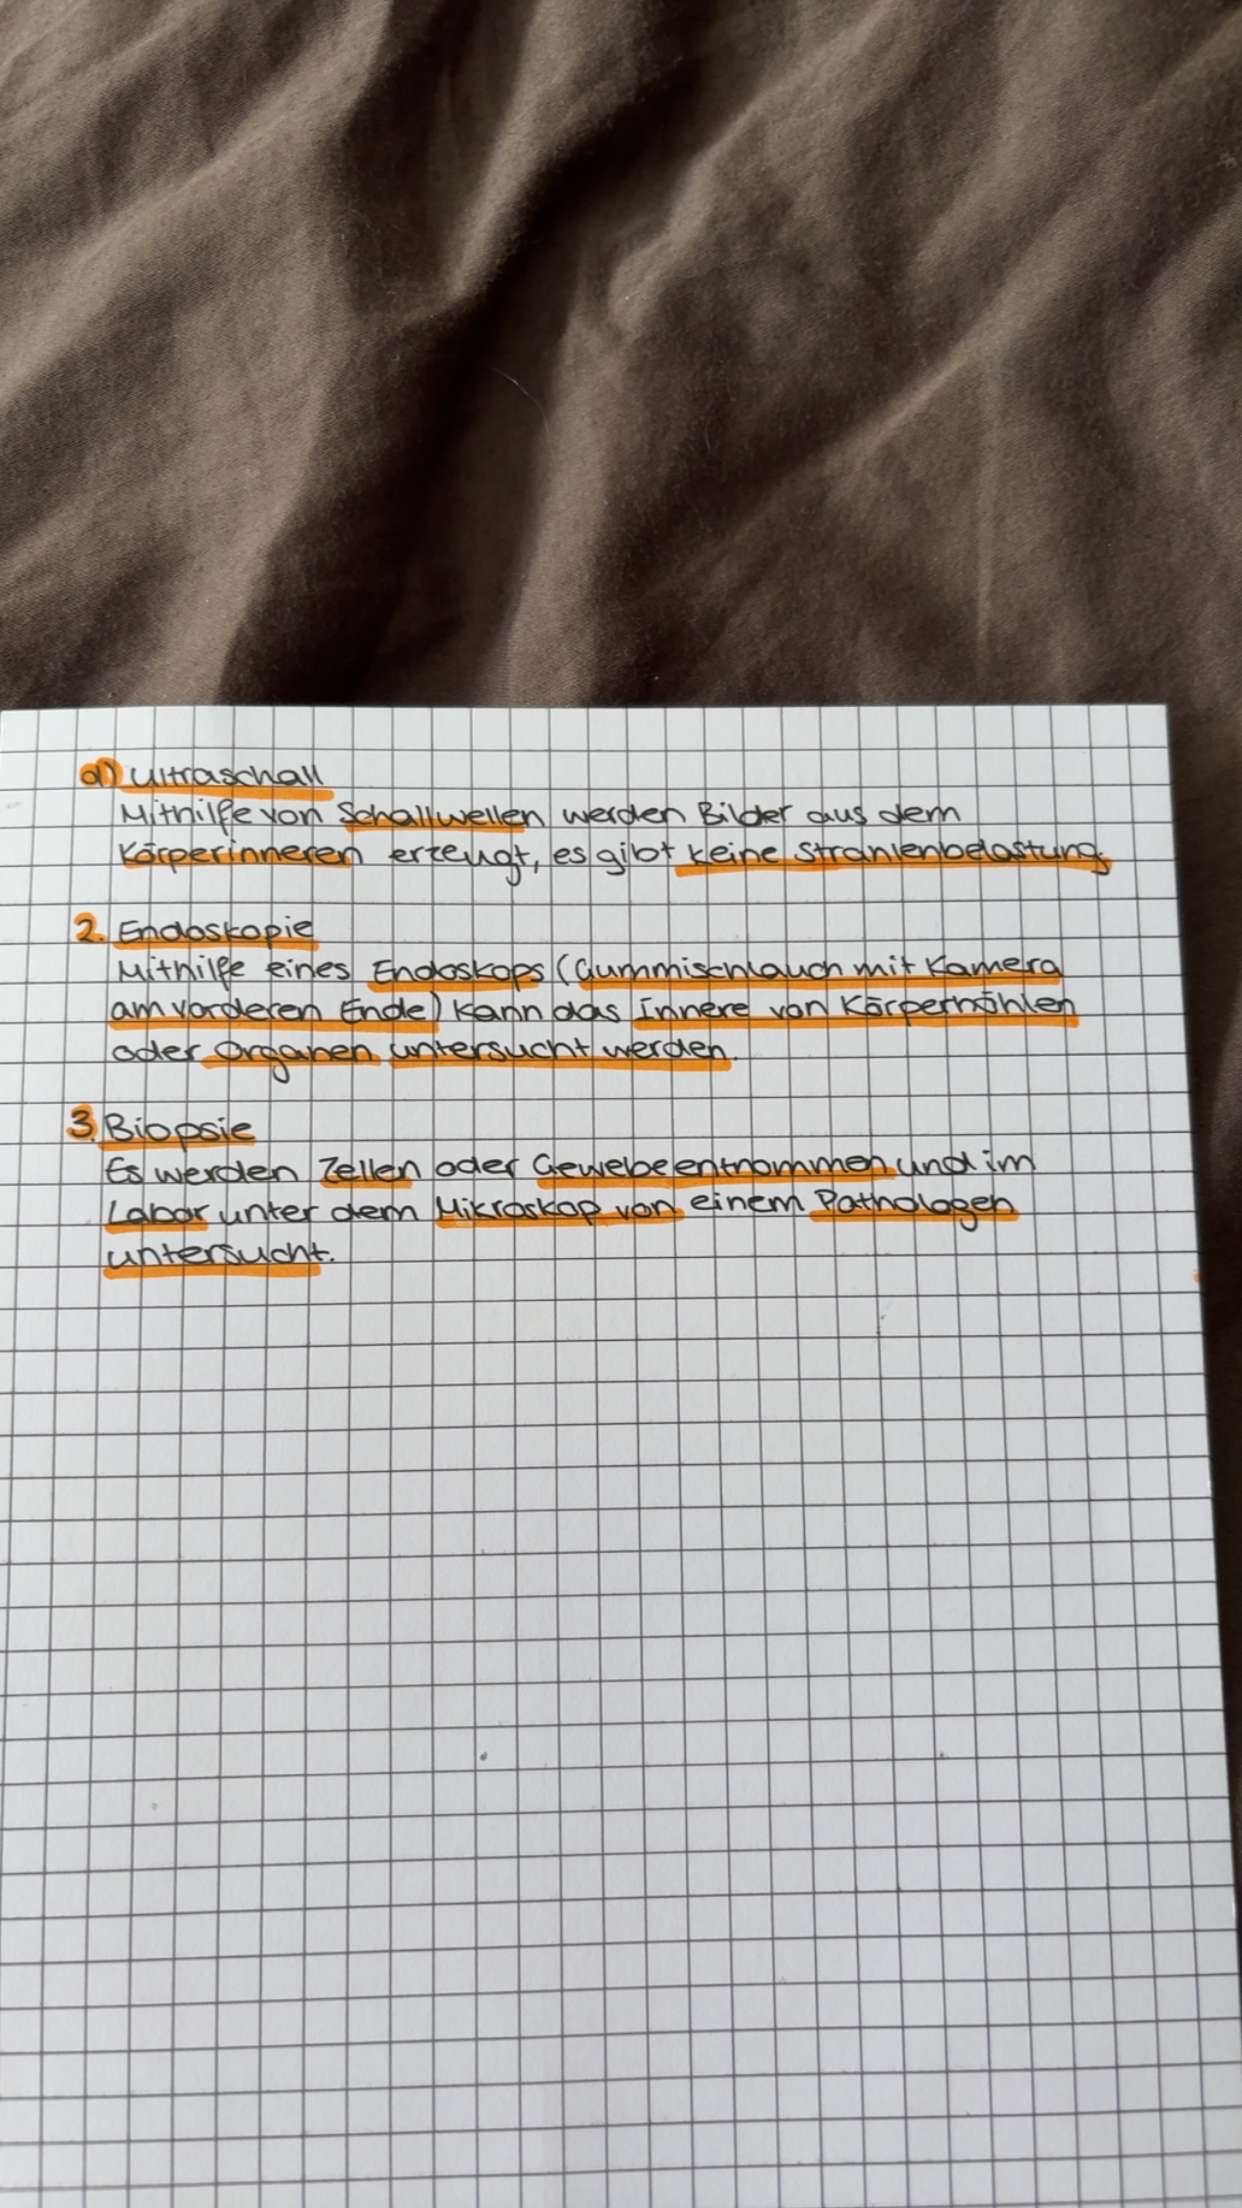 d) Ultraschall
Mithilfe von Schallwellen werden Bilder aus dem
Körperinneren erzeugt, es gibt keine Strahlenbelastung.
2. Endoskopie
Mithilfe eines Endoskops (Gummischlauch mit Kamera
am vorderen Ende) kann das Innere von Körperhöhlen
oder Organen untersucht werden.
3. Biopsie
Es werden Zellen oder Gewebe entnommen und im
Labor unter dem Mikroskop von einem Pathologen
untersucht.